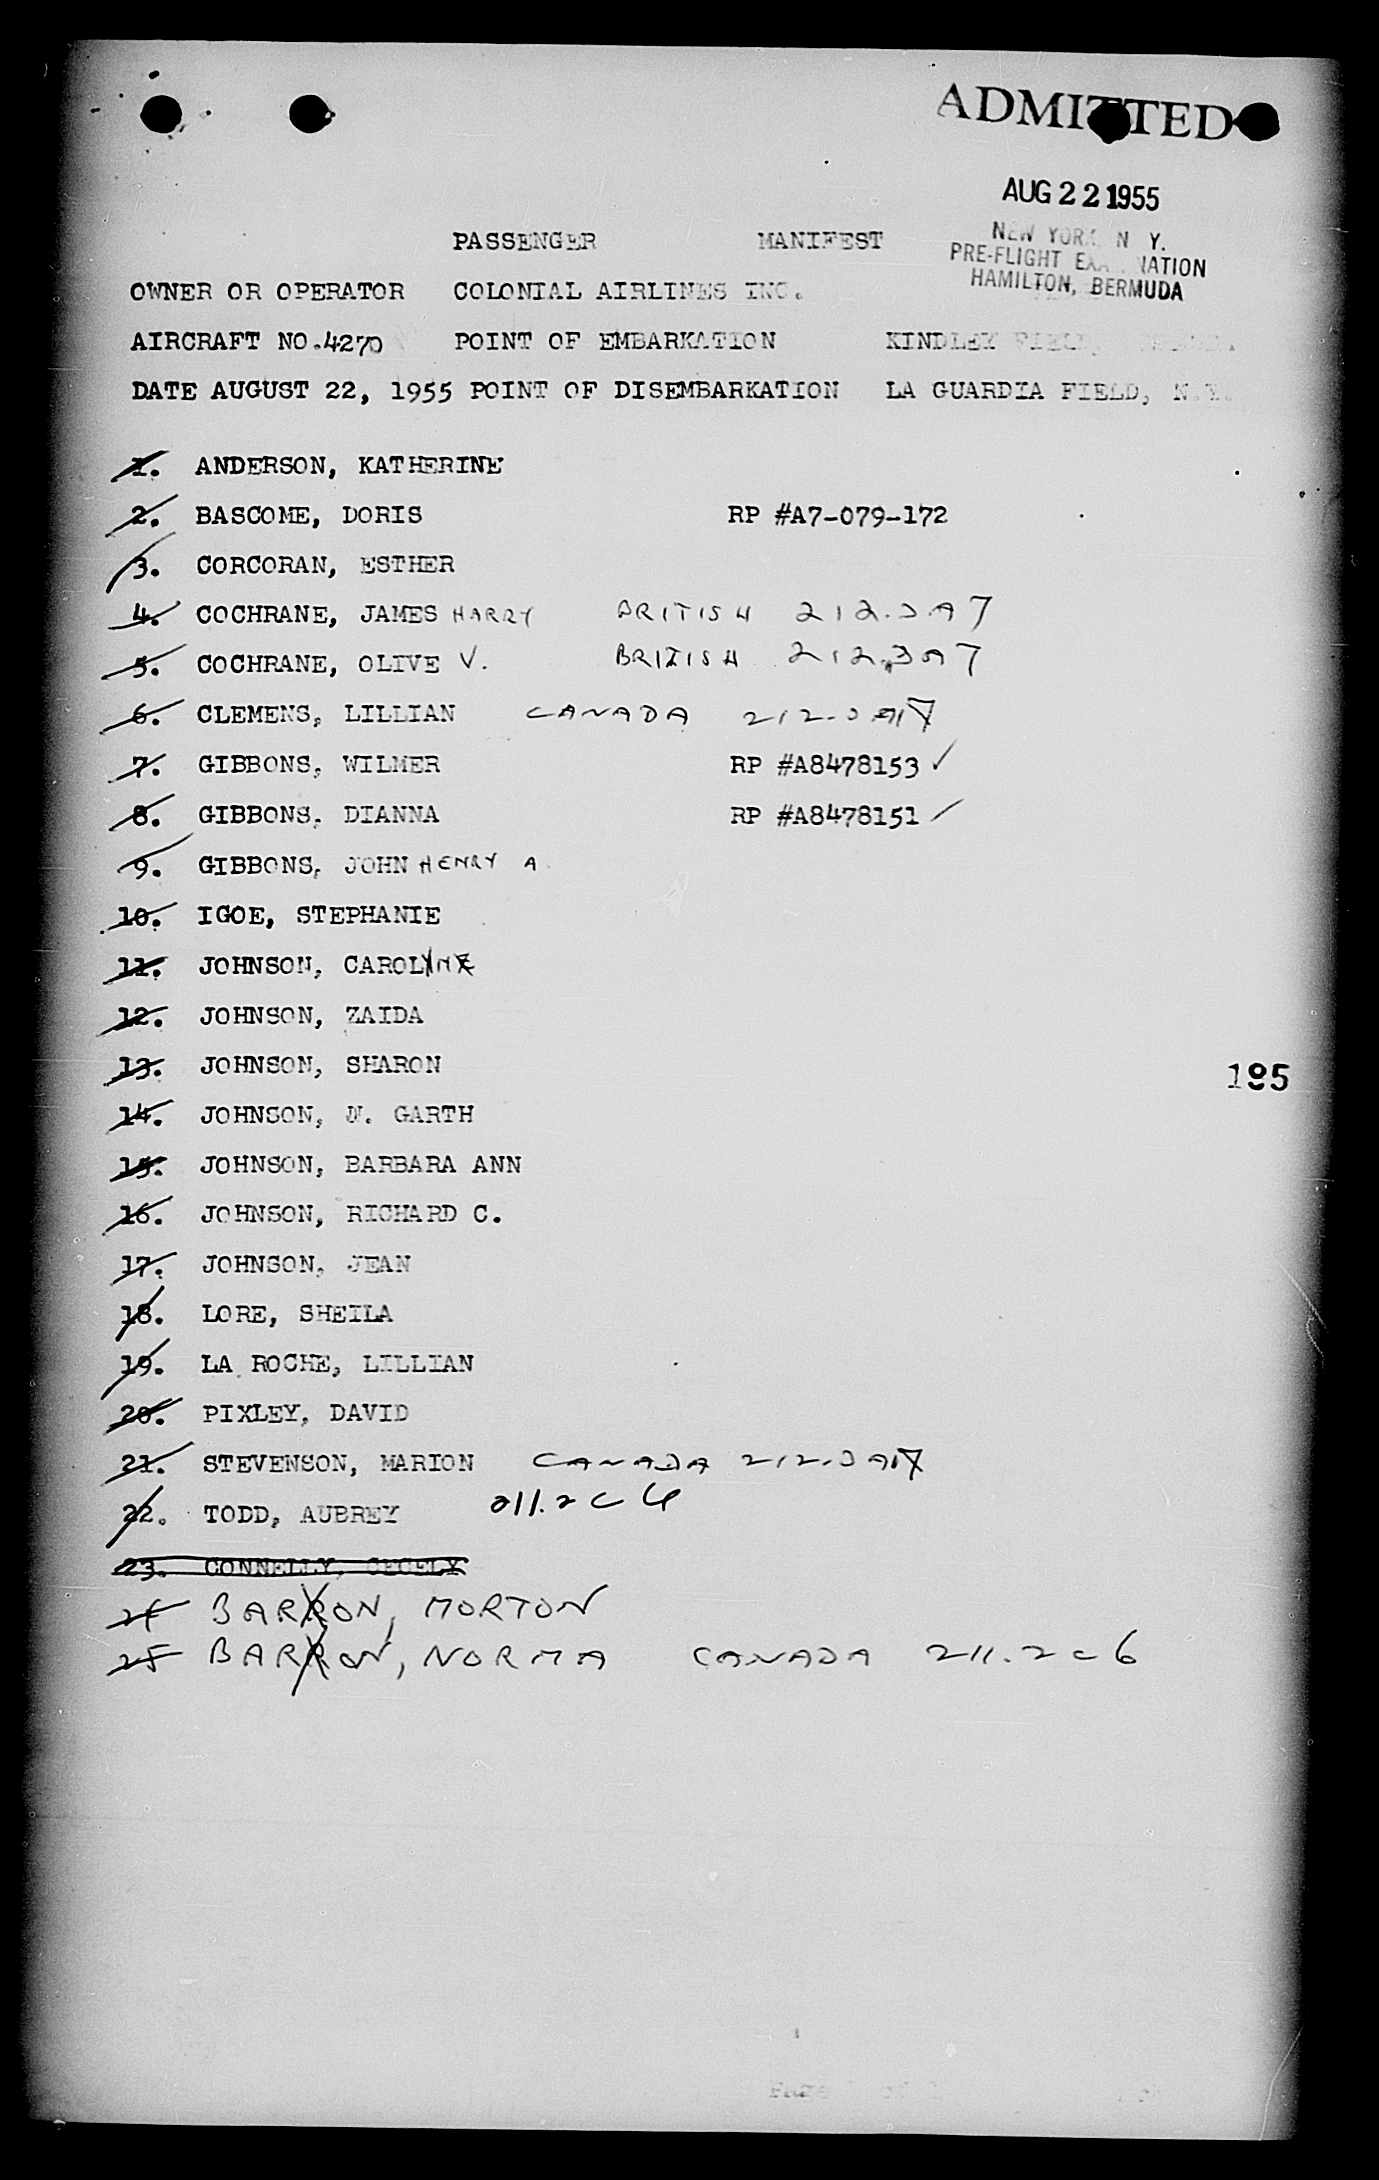 ADMITTED
AUG 22 1955
NEW YORK N Y.
PRE-FLIGHT
HAMILTON, BERMUDA
PASSENGER MANIFEST
OWNER OR OPERATOR COLONIAL AIRLINES INC.
AIRCRAFT NO.4270 POINT OF EMBARKATION KINDLEY FIELD,
DATE AUGUST 22, 1955 POINT OF DISEMBARKATION LA GUARDIA FIELD, N.Y.
1. ANDERSON, KATHERINE
2. BASCOME, DORIS RP #A7-079-172
3. CORCORAN, ESTHER
4. COCHRANE, JAMES HARRY BRITISH 212.3A7
5. COCHRANE, OLIVE V. BRITISH 212.3A7
6. CLEMENS, LILLIAN CANADA
7. GIBBONS, WILMER RP #A8478153 ✓
8. GIBBONS, DIANNA RP #A8478151
9. GIBBONS, JOHN HENRY A
10. IGOE, STEPHANIE
11. JOHNSON, CAROL
12. JOHNSON, ZAIDA
13. JOHNSON, SHARON
14. JOHNSON, W. GARTH
15. JOHNSON, BARBARA ANN
16. JOHNSON, RICHARD C.
17. JOHNSON, JEAN
18. LORE, SHEILA
19. LA ROCHE, LILLIAN
20. PIXLEY, DAVID
21. STEVENSON, MARION CANADA
22. TODD, AUBREY 211.2C6
23. CONNELLY, CECELY
24 BARON, MORTON
25 BARON, NORMA CANADA 211.2C6
195